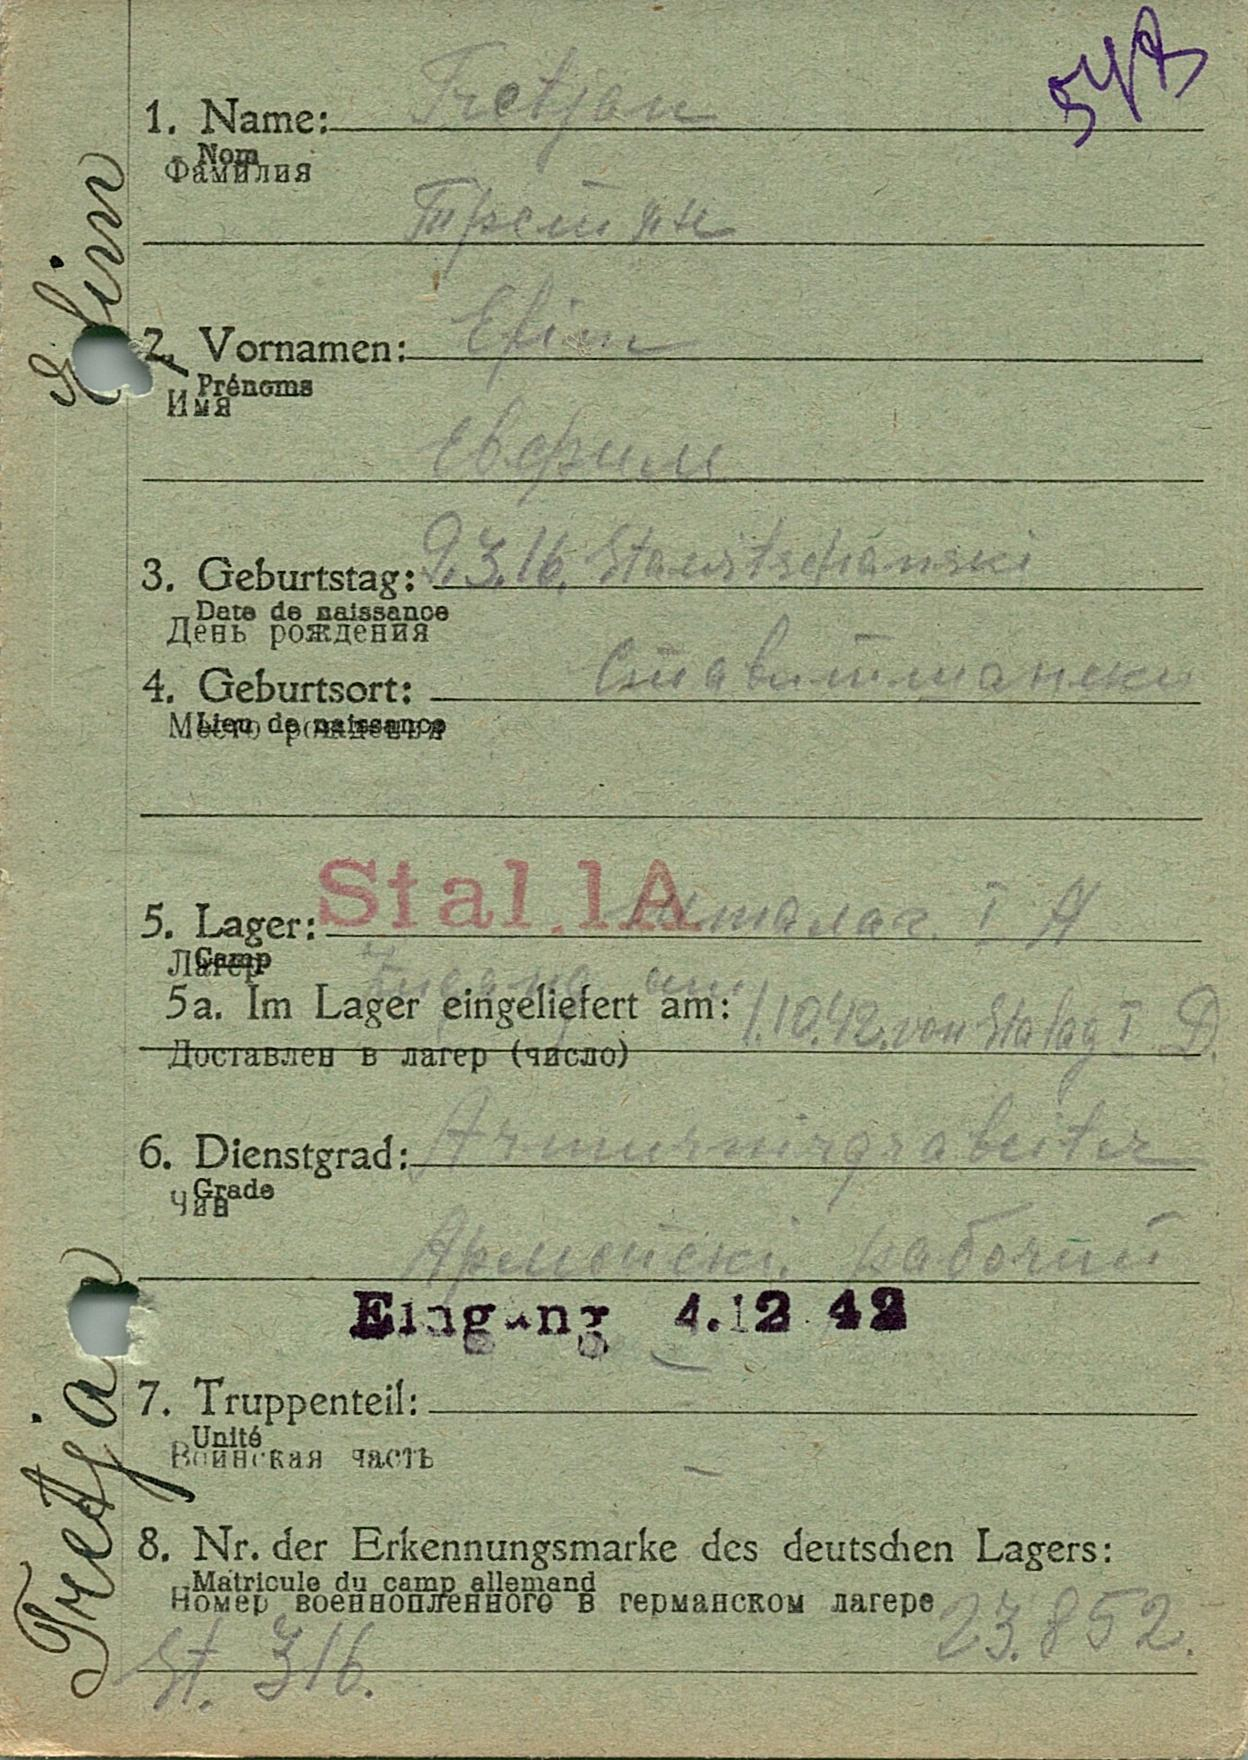 1. Name: Tretjan
Nom
Фамилия
Третян
2. Vornamen: Efim
Prénoms
Имя
Евфим
3. Geburtstag: 9.3.16. Stawitschanski
Date de naissance
День рождения
4. Geburtsort: Ставитшански
Lieu de naissance
Место рождения
Stal.1A
5. Lager: шталаг. I А
Camp
Лагер
Zugang am
5a. Im Lager eingeliefert am: 1.10.42. von Stalag I D.
Доставлен в лагер (число)
6. Dienstgrad: Armeeirgrabeiter
Grade
Чин
Армейскі. рабочий
Eingang 4.12 42
7. Truppenteil: —
Unité
Воинская часть
8. Nr. der Erkennungsmarke des deutschen Lagers:
Matricule du camp allemand
Номер военнопленного в германском лагере 23.852.
St. 316.
Tretjan Efim